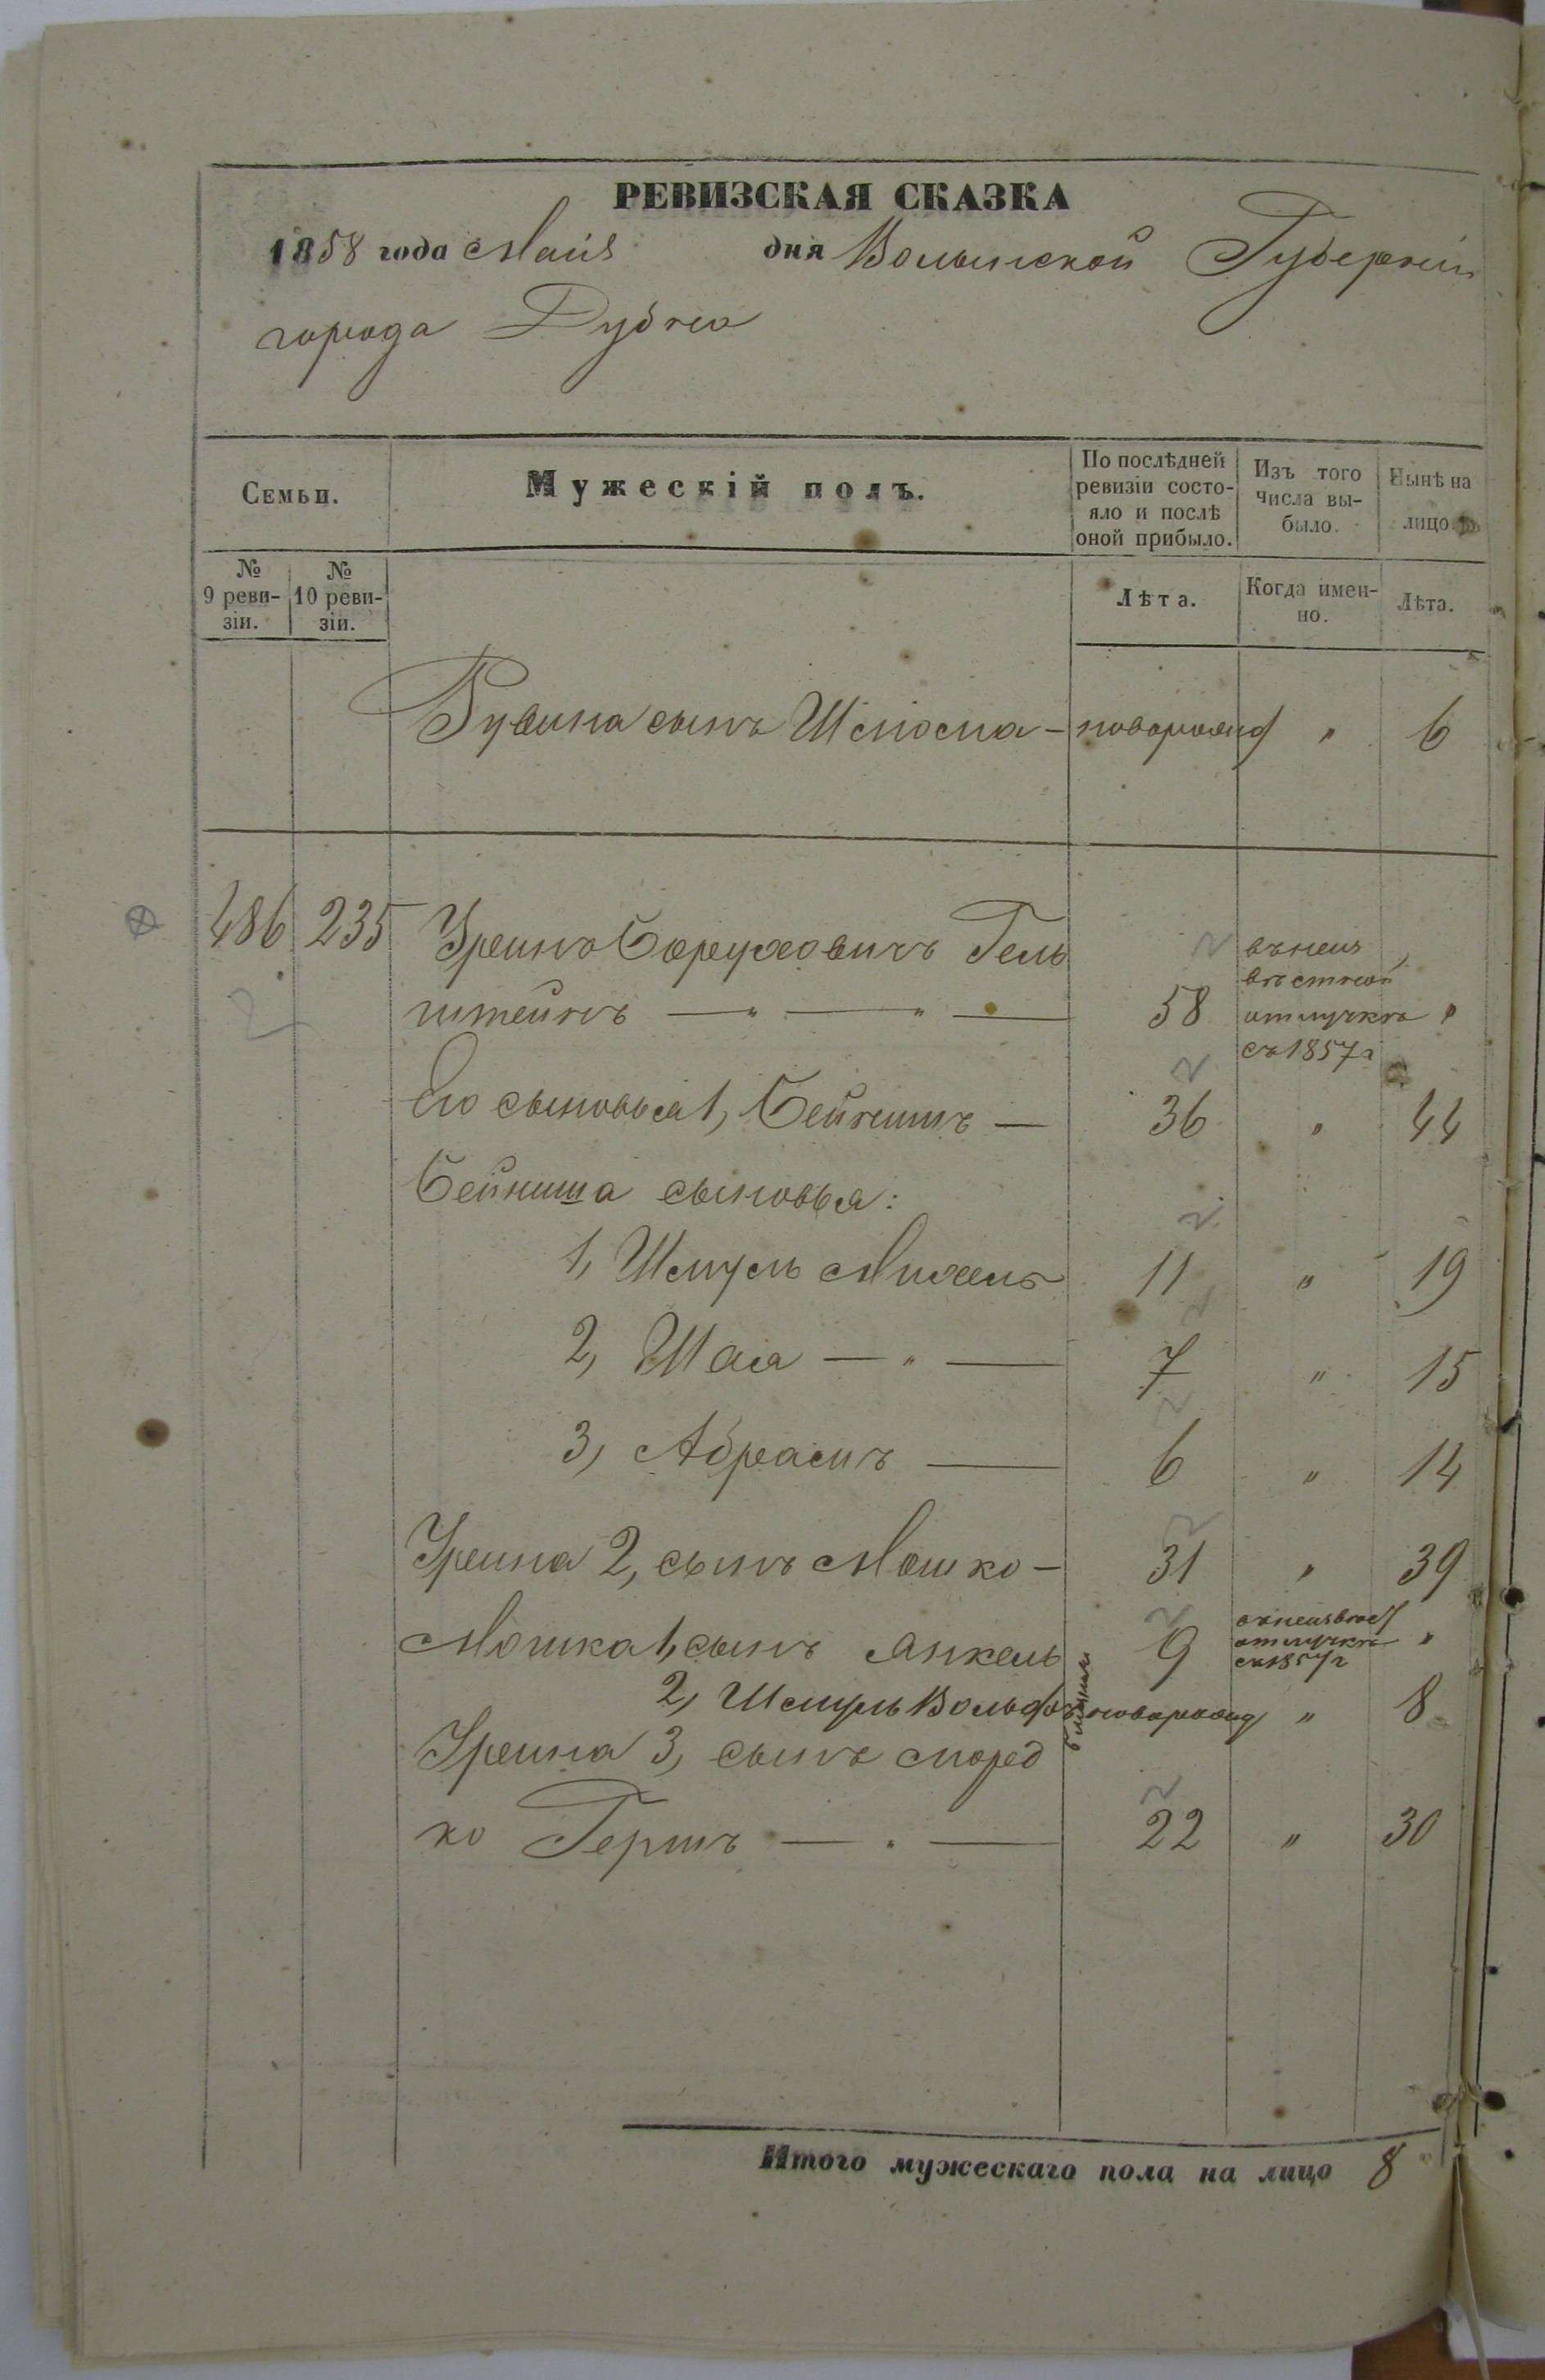 РЕВИЗСКАЯ СКАЗКА
1858 года Маія дня Волынской Губерніи
города Дубно
Семьи.
Мужескій полъ.
По послѣдней ревизіи состо-
яло и послѣ
оной прибыло.
Изъ того
числа вы-
было.
Нынѣ на
лицо.
№
9 реви-
зіи.
№
10 реви-
зіи.
Лѣта.
Когда имен-
но.
Лѣта.
Рувина сынъ Шлома — новорожд " 6
486 235 Срулъ Борухович Гель
штейнъ — " — " — 58 "
отлучкѣ
съ 1857 г
Его сыновья 1, Бейнишъ — 36 " 44
Бейниша сыновья:
1, Шмуль Михель 11 " 19
2, Шая — " — 7 " 15
3, Абрамъ — 6 " 14
2, сынъ Мошко — 31 " 39
Мошка 1, сынъ Янкель 9 отлучкѣ "
съ 1857 г
2, Шмуль Вольфъ новорожд " 8
3, сынъ Морд
ко Гершъ — " — 22 " 30
Итого мужескаго пола на лицо 8